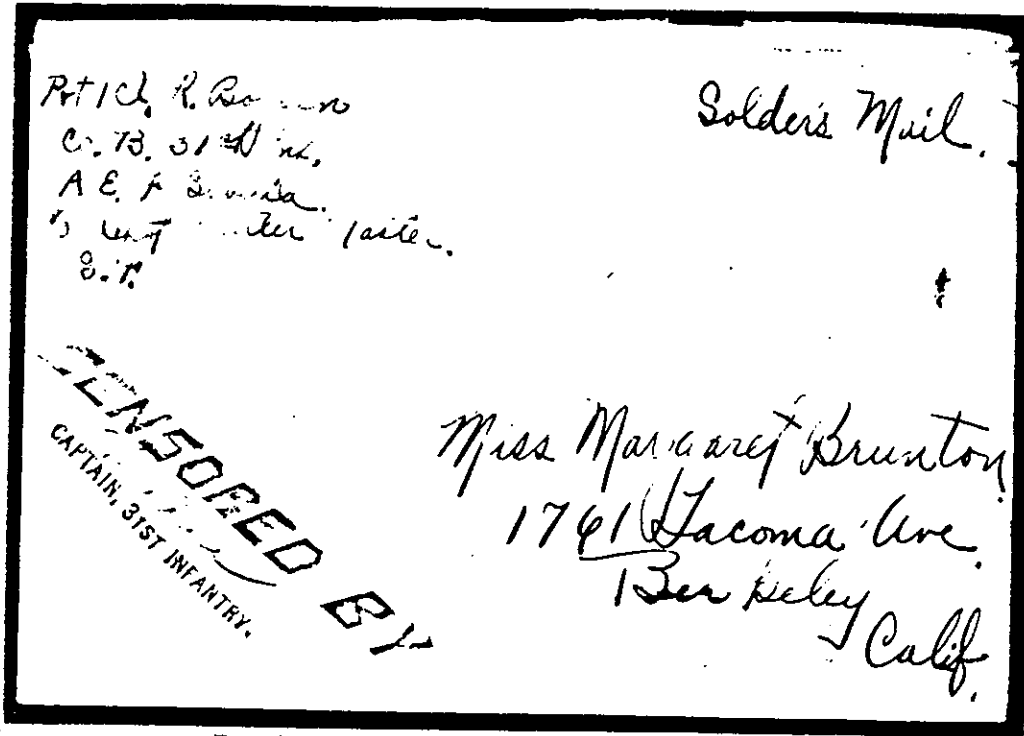 Pvt 1 Cl. R.
Co. B. 31st Inf.
A E. F
Solder's Mail.
CENSORED BY
CAPTAIN, 31ST INFANTRY.
Miss Margaret Brunton
1761 Tacoma Ave.
Berkeley
Calif.